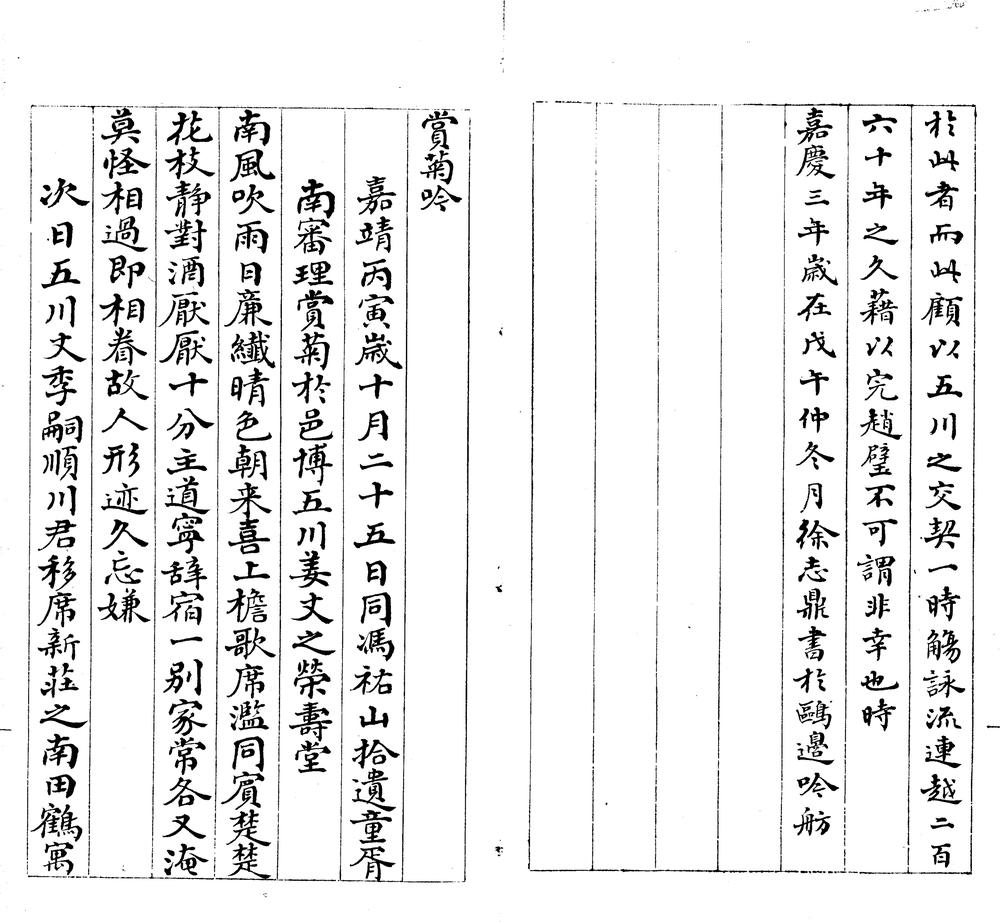 於此者而此顧以五川之交契一時觴詠流連越二百
六十年之久藉以完趙璧不可謂非幸也時
嘉慶三年歲在戊午仲冬月徐志鼎書於鷗邊吟舫
賞菊吟
嘉靖丙寅歲十月二十五日同馮祐山拾遺童胥
南審理賞菊於邑博五川姜丈之榮壽堂
南風吹雨日廉纖晴色朝来喜上檐歌席濫同賓楚楚
花枝靜對酒厭厭十分主道寧辭宿一別家常各又淹
莫怪相過即相眷故人形迹久忘嫌
次日五川丈季嗣順川君移席新莊之南田鶴寓